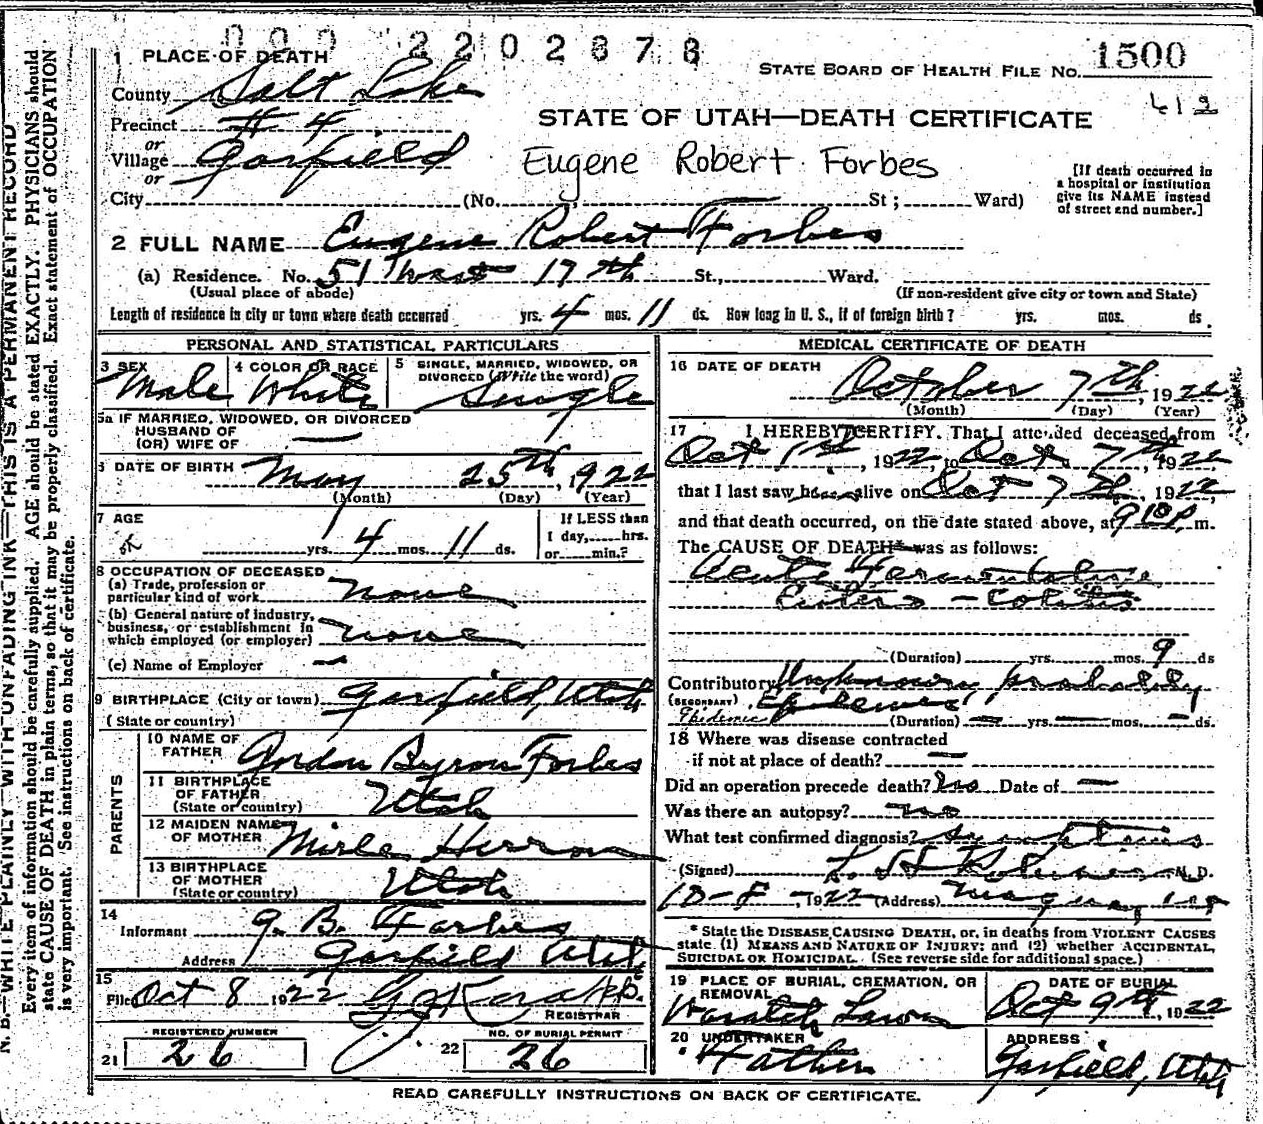 000 2202878
1 PLACE OF DEATH
STATE BOARD OF HEALTH FILE No. 1500
County Salt Lake
412
Precinct # 4
STATE OF UTAH—DEATH CERTIFICATE
or
Village Garfield
Eugene Robert Forbes
or
[If death occurred in a hospital or institution give its NAME instead of street end number.]
City (No. St ; Ward)
2 FULL NAME Eugene Robert Forbes
(a) Residence. No. 51 West 17th St., Ward.
(Usual place of abode) (If non-resident give city or town and State)
Length of residence in city or town where death occurred yrs. 4 mos. 11 ds. How long in U. S., if of foreign birth? yrs. mos. ds.
PERSONAL AND STATISTICAL PARTICULARS
3 SEX Male
4 COLOR OR RACE White
5 SINGLE, MARRIED, WIDOWED, OR DIVORCED (Write the word) Single
5a IF MARRIED, WIDOWED, OR DIVORCED
HUSBAND OF
(OR) WIFE OF —
6 DATE OF BIRTH May 25th, 1922
(Month) (Day) (Year)
7 AGE
yrs. 4 mos. 11 ds.
If LESS than
1 day, hrs.
or min.?
8 OCCUPATION OF DECEASED
(a) Trade, profession or
particular kind of work none
(b) General nature of industry,
business, or establishment in
which employed (or employer) none
(c) Name of Employer —
9 BIRTHPLACE (City or town) Garfield, Utah
(State or country)
PARENTS
10 NAME OF
FATHER Gordon Byron Forbes
11 BIRTHPLACE
OF FATHER
(State or country) Utah
12 MAIDEN NAME
OF MOTHER Mirle Herron
13 BIRTHPLACE
OF MOTHER
(State or country) Utah
14
Informant G. B. Forbes
Address Garfield Utah
15
Filed Oct 8 1922
REGISTRAR
REGISTERED NUMBER
21 26
NO. OF BURIAL PERMIT
22 26
MEDICAL CERTIFICATE OF DEATH
16 DATE OF DEATH
October 7th, 1922
(Month) (Day) (Year)
17 I HEREBY CERTIFY. That I attended deceased from
Oct 1st, 1922, to Oct. 7th 1922
that I last saw him alive on Oct 7th, 1922
and that death occurred, on the date stated above, at 910 P. m.
The CAUSE OF DEATH* was as follows:
Acute Fermentative
Entero-Colitis
(Duration) yrs. mos. 9 ds
Contributory Unknown, probably
(SECONDARY) Epidemic
Epidemic (Duration) — yrs. — mos. — ds.
18 Where was disease contracted
if not at place of death? —
Did an operation precede death? No Date of —
Was there an autopsy? no
What test confirmed diagnosis? Symptoms
(Signed) M. D.
10-8-, 1922 (Address) Magna,
* State the DISEASE CAUSING DEATH, or, in deaths from VIOLENT CAUSES
state (1) MEANS AND NATURE OF INJURY; and (2) whether ACCIDENTAL,
SUICIDAL OR HOMICIDAL. (See reverse side for additional space.)
19 PLACE OF BURIAL, CREMATION, OR
REMOVAL
Wasatch Lawn
DATE OF BURIAL
Oct 9th, 1922
20 UNDERTAKER
Father
ADDRESS
Garfield, Utah
READ CAREFULLY INSTRUCTIONS ON BACK OF CERTIFICATE.
N. B.—WRITE PLAINLY WITH UNFADING INK—THIS IS A PERMANENT RECORD
Every item of information should be carefully supplied. AGE should be stated EXACTLY. PHYSICIANS should
state CAUSE OF DEATH in plain terms, so that it may be properly classified. Exact statement of OCCUPATION
is very important. See instructions on back of certificate.